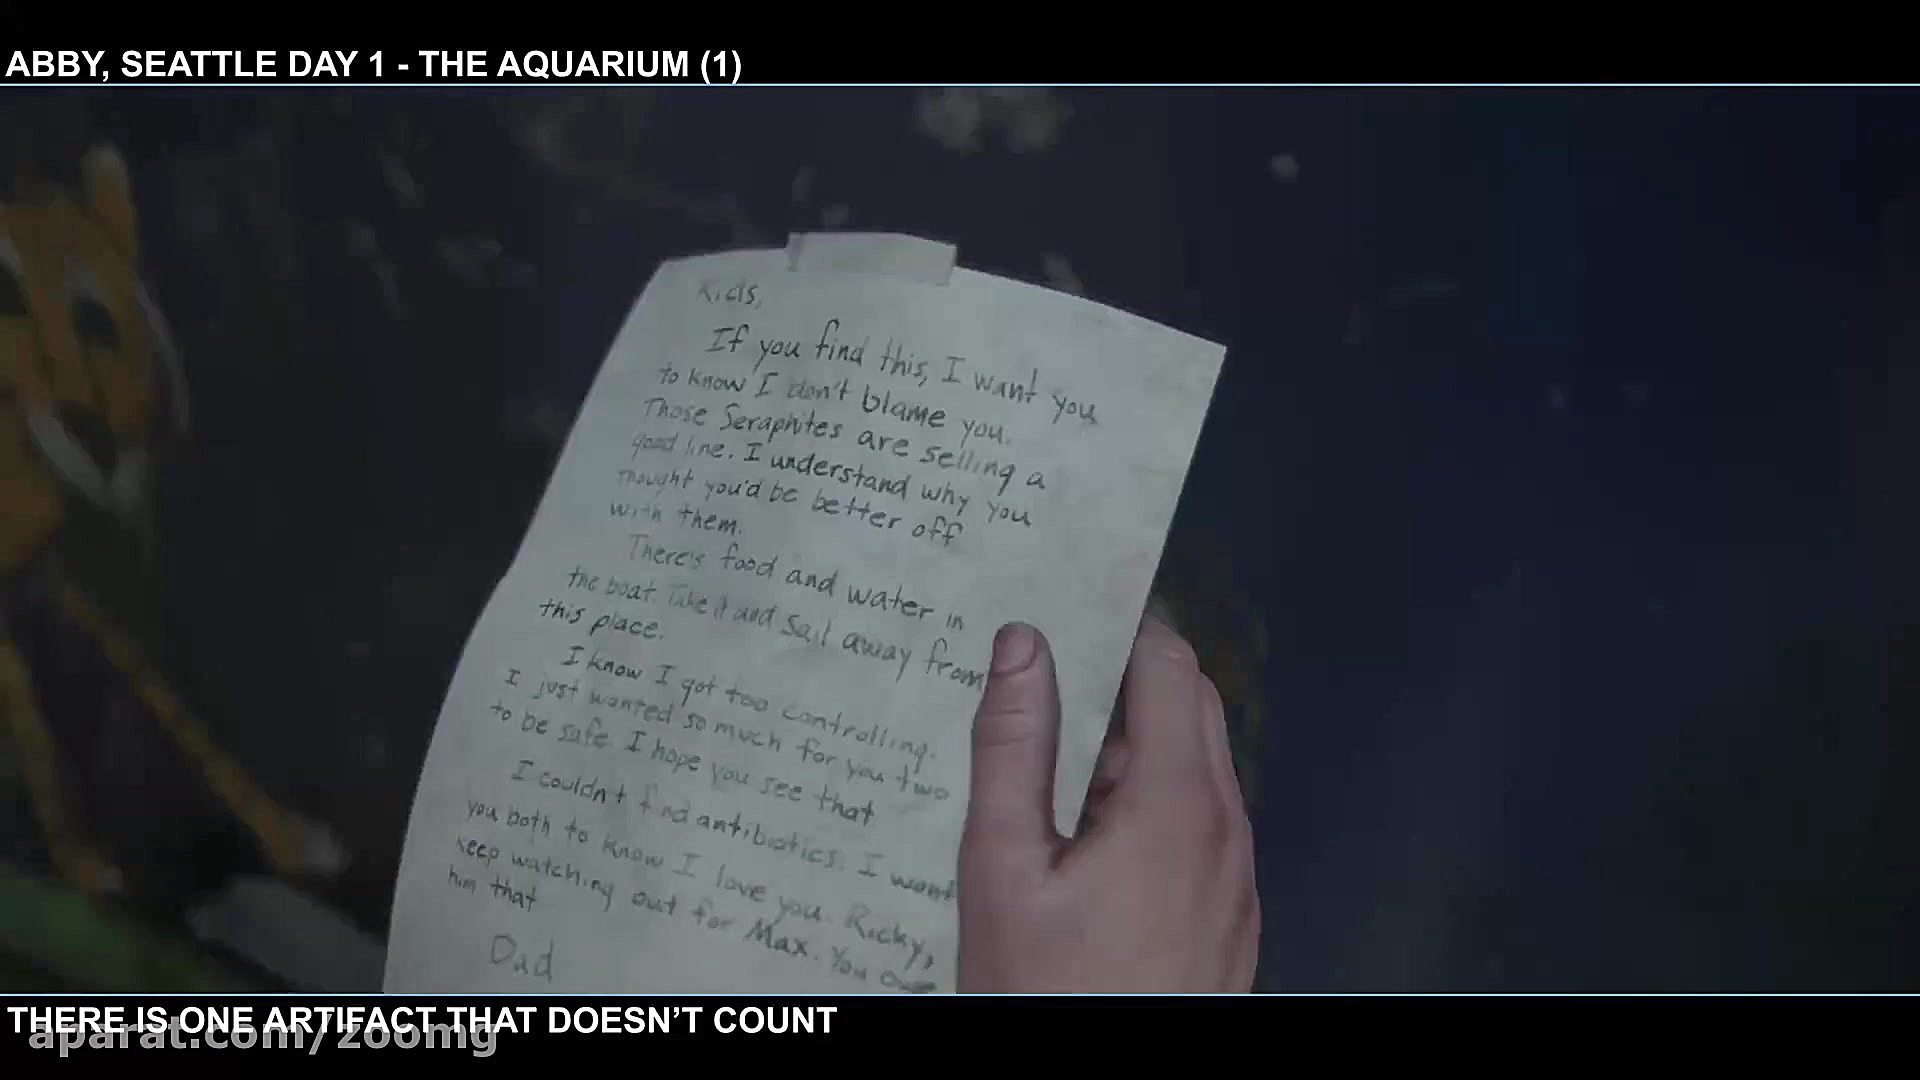 ABBY, SEATTLE DAY 1 - THE AQUARIUM (1)
Kids,
If you find this, I want you
to know I don't blame you.
Those Seraphites are selling a
good line. I understand why you
thought you'd be better off
with them.
There's food and water in
the boat. Take it and sail away from
this place.
I know I got too controlling.
I just wanted so much for you two
to be safe. I hope you see that
I couldn't find antibiotics. I want
you both to know I love you. Ricky,
keep watching out for Max. You owe
him that
Dad
THERE IS ONE ARTIFACT THAT DOESN'T COUNT
aparat.com/zoomg